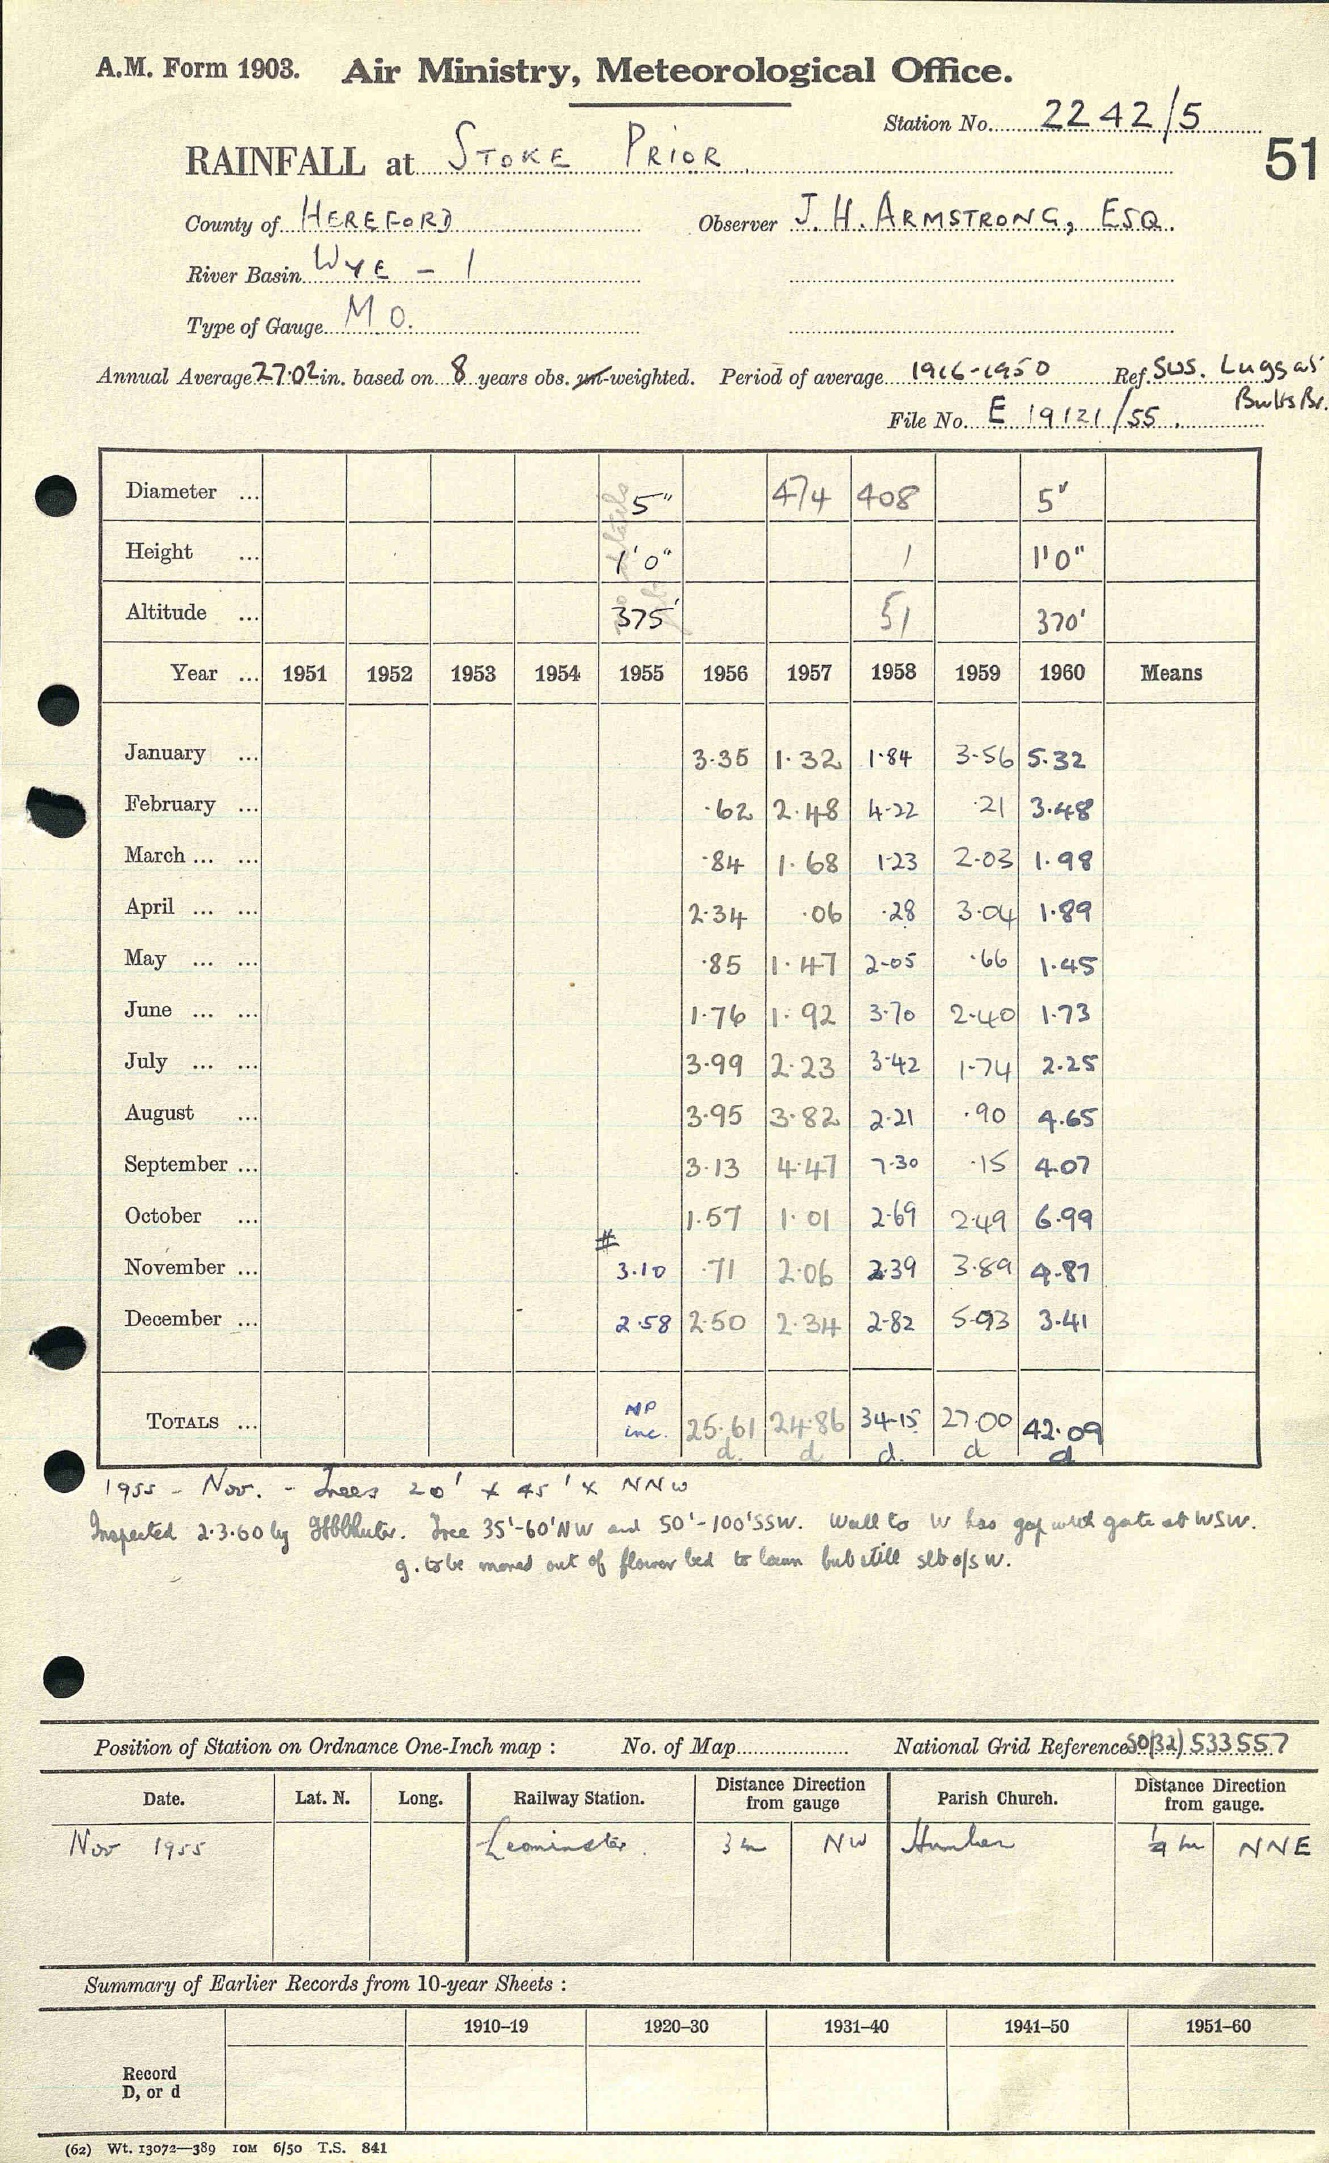 A.M. Form 1903. Air Ministry, Meteorological Office.
Station No. 2242/5
51
RAINFALL at STOKE PRIOR
County of HEREFORD Observer J. H. ARMSTRONG, ESQ.
River Basin WYE - 1
Type of Gauge M O.
Annual Average 27.02 in. based on 8 years obs. un-weighted. Period of average 1916-1950 Ref. SWS. Lugg at
Butts Br.
File No. E 19121/55.
Diameter ... 5" 474 408 5"
Height ... 1'0" 1 1'0"
Altitude ... 375' 51 370'
no details
Year ... 1951 1952 1953 1954 1955 1956 1957 1958 1959 1960 Means
January ... 3.35 1.32 1.84 3.56 5.32
February ... .62 2.48 4.22 .21 3.48
March ... ... .84 1.68 1.23 2.03 1.98
April ... ... 2.34 .06 .28 3.04 1.89
May ... ... .85 1.47 2.05 .66 1.45
June ... ... 1.76 1.92 3.70 2.40 1.73
July ... ... 3.99 2.23 3.42 1.74 2.25
August ... 3.95 3.82 2.21 .90 4.65
September ... 3.13 4.47 7.30 .15 4.07
October ... 1.57 1.01 2.69 2.49 6.99
#
November ... 3.10 .71 2.06 2.39 3.89 4.87
December ... 2.58 2.50 2.34 2.82 5.93 3.41
TOTALS ... NP inc. 25.61 24.86 34.15 27.00 42.09
d. d d. d d
1955 - Nov. - Trees 20' x 45' x NNW
Inspected 2.3.60 by . Tree 35'-60'NW and 50'-100'SSW. Wall to W has gap with gate at WSW.
g. to be moved out of flower bed to lawn but still slt o/s W.
Position of Station on Ordnance One-Inch map : No. of Map National Grid Reference SO(32) 533557
Date. Lat. N. Long. Railway Station. Distance Direction from gauge Parish Church. Distance Direction from gauge.
Nov 1955 Leominster. 3m NW Humber ¼ m NNE
Summary of Earlier Records from 10-year Sheets :
1910–19 1920–30 1931–40 1941–50 1951–60
Record
D, or d
(62) Wt. 13072—389 10M 6/50 T.S. 841